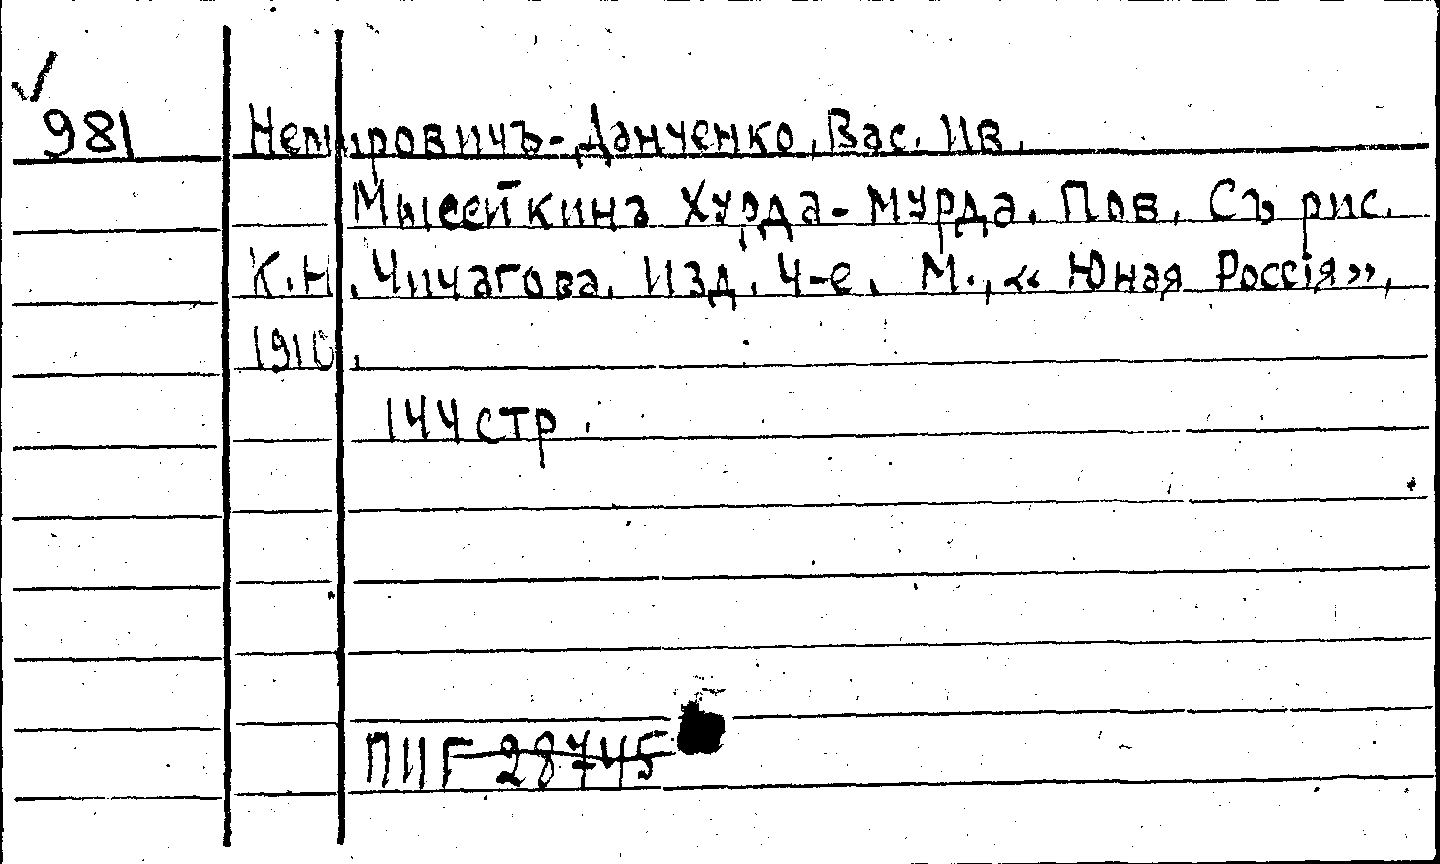 ✓
981 Немировичъ-Данченко, Вас. Ив.
Мысейкина Хурда-мурда. Пов. Съ рис.
К.Н. Чичагова. Изд. 4-е. М., «Юная Россія»,
1910.
144 стр.
ПИГ 28745